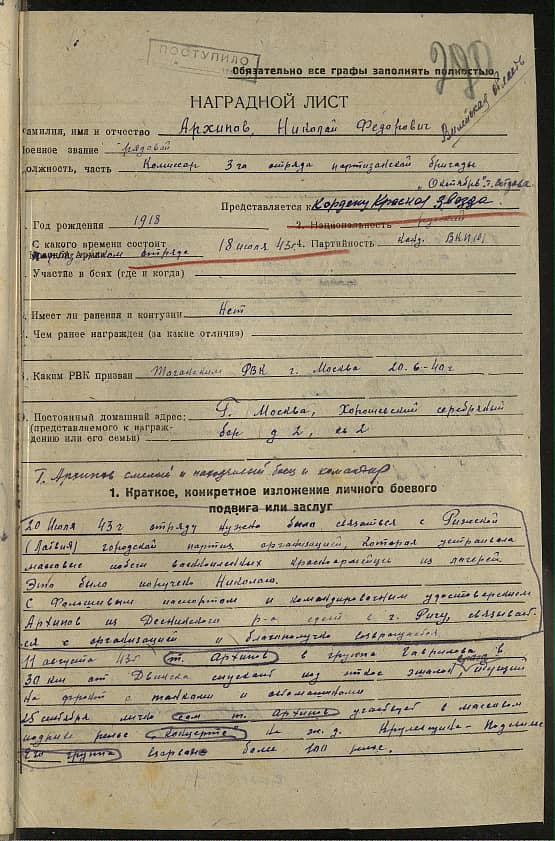 ПОСТУПИЛО
290
Обязательно все графы заполнять полностью
НАГРАДНОЙ ЛИСТ
Фамилия, имя и отчество Архипов, Николай Федорович
Военное звание рядовой
Должность, часть Комиссар 3го отряда партизанской бригады
"Октябрь"
Представляется к ордену Красная звезда.
1. Год рождения 1918 2. Национальность русский
С какого времени состоит
отряда 18 июля 43г 4. Партийность канд. ВКП(б)
Участие в боях (где и когда)
Имеет ли ранения и контузии Нет
Чем ранее награжден (за какие отличия)
Каким РВК призван Таганским РВК г. Москва 20.6-40г
Постоянный домашний адрес: Г. Москва, Хорошевский серебряный
(представляемого к награждению или его семьи) бор д 2, кв 2
Т. Архипов смелый и находчивый боец и командир
1. Краткое, конкретное изложение личного боевого
подвига или заслуг
20 Июля 43 г отряду нужно было связаться с Рижской
(Латвия) городской партиз организацией, которая устраивала
массовые побеги военнопленных красноармейцев из лагерей
Это было поручено Николаю.
С Фальшивым паспортом и командировочным удостоверением
Архипов из Дисненского р-а едет в г. Ригу, связывает-
ся с организацией и благополучно возвращается.
11 августа 43г т. Архипов в группе Гаврилова в
30 км от Двинска спускает под откос эшалон врага, идущий
на фронт с танками и автомашинами
25 сентября лично сам т. Архипов участвует в массовом
подрыве рельс "концерте" на ж. д. Крулевщина - Подсвилье
Его группа взорвано более 100 рельс.